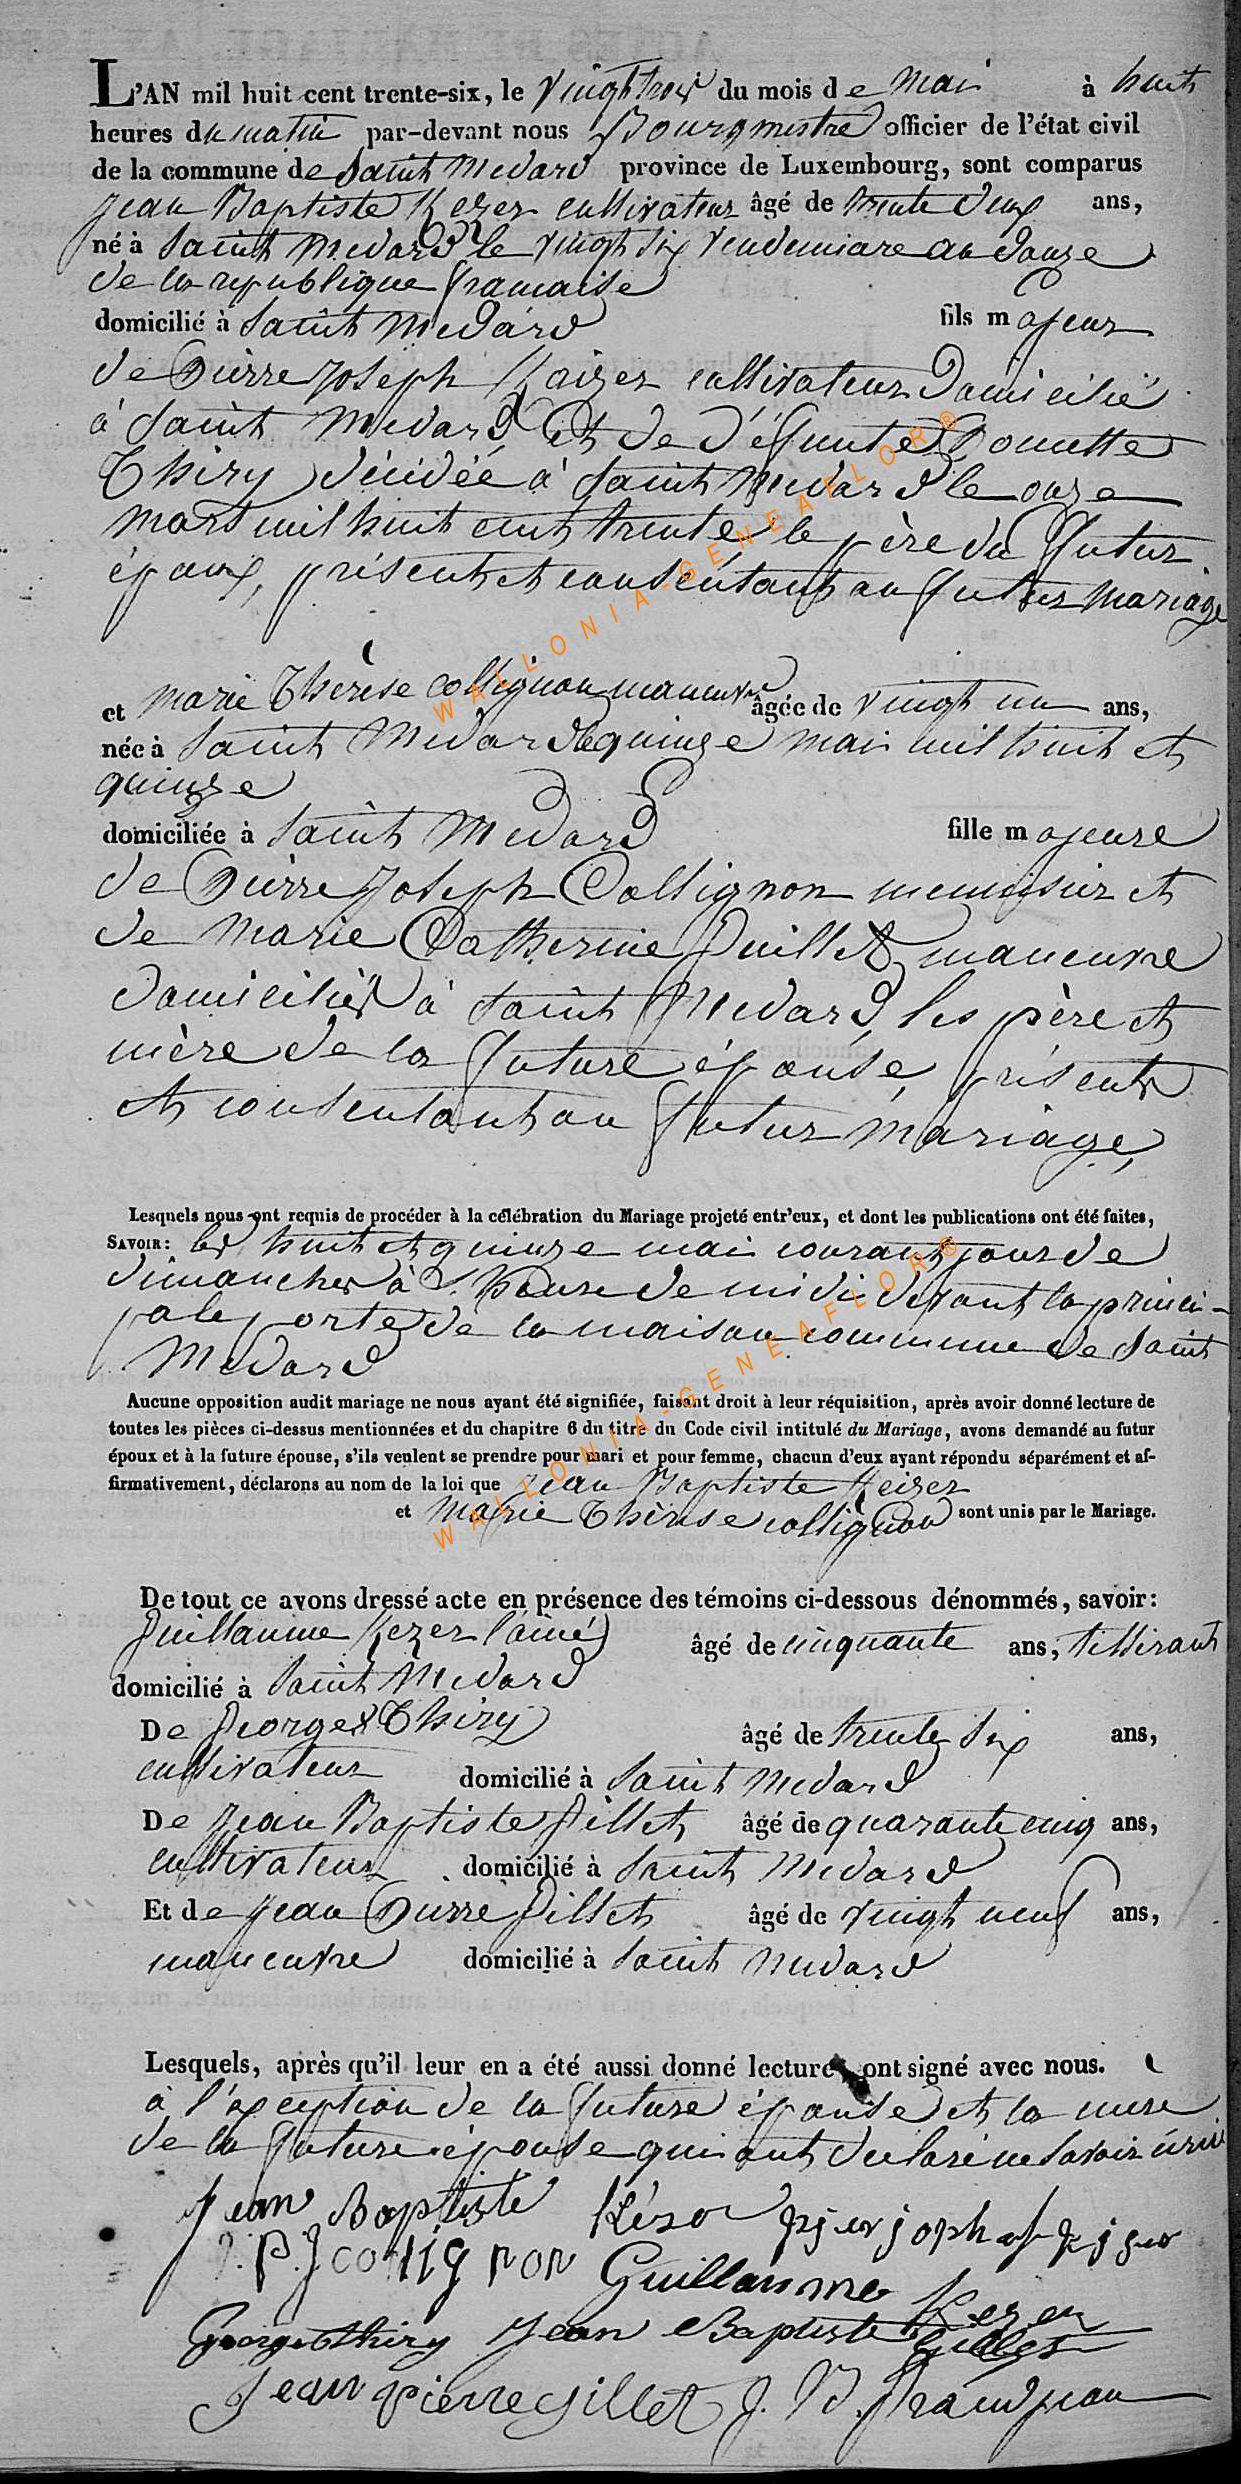 L'AN mil huit cent trente-six, le vingt trois du mois de mai à huit
heures du matin par-devant nous Bourgmestre officier de l'état civil
de la commune de Saint Medard province de Luxembourg, sont comparus
Jean Baptiste Kezer cultivateur âgé de trente deux ans,
né à Saint Medard le vingt six vendemiare an douze
de la republique francaise
domicilié à Saint Medard fils majeur
de Pierre Joseph Kaizer cultivateur domicilié
à Saint Medard, et de défunte Poncette
Thiry décidée à Saint Medard le onze
mars mil huit cent trente le père du futur
époux, présent et consentant au futur mariage
et marie Thérèse Collignon maneuvre âgée de vingt un ans,
née à Saint Medard le quinze mai mil huit et
quinze
domiciliée à Saint Medard fille majeure
de Pierre Joseph Collignon menuisier et
de Marie Catherine Guillet, maneuvre
domiciliés à Saint Medard, les père et
mère de la future épouse, présents
et consentant au futur mariage,
Lesquels nous ont requis de procéder à la célébration du Mariage projeté entr'eux, et dont les publications ont été faites,
SAVOIR: les huit et quinze mai courant jour de
dimanches à l'heure de midi devant la princi-
pale porte de la maison commune de Saint
Medard
Aucune opposition audit mariage ne nous ayant été signifiée, faisant droit à leur réquisition, après avoir donné lecture de
toutes les pièces ci-dessus mentionnées et du chapitre 6 du titre du Code civil intitulé du Mariage, avons demandé au futur
époux et à la future épouse, s'ils veulent se prendre pour mari et pour femme, chacun d'eux ayant répondu séparément et af-
firmativement, déclarons au nom de la loi que Jean Baptiste Keizer
et Marie Thérèse Collignon sont unis par le Mariage.
De tout ce avons dressé acte en présence des témoins ci-dessous dénommés, savoir:
Guillaume Kezer l'ainé âgé de cinquante ans, tisserant
domicilié à Saint Medard
De Georges Thiry âgé de trente six ans,
cultivateur domicilié à Saint Medard
De Jean Baptiste Gillet âgé de quarante cinq ans,
cultivateur domicilié à Saint Medard
Et de Jean Pierre Gillet âgé de vingt neuf ans,
maneuvre domicilié à Saint Medard
Lesquels, après qu'il leur en a été aussi donné lecture, ont signé avec nous.
à l'exception de la future épouse et la mere
de la future épouse qui ont declaré ne savoir écrire
Jean Baptiste Késer
P. J collignon Guillaume Kezer
George Thiry Jean Baptiste Gillet
Jean pierre gillet J. B. Grandjean
WALLONIA-GENEAFLOR®
WALLONIA-GENEAFLOR®